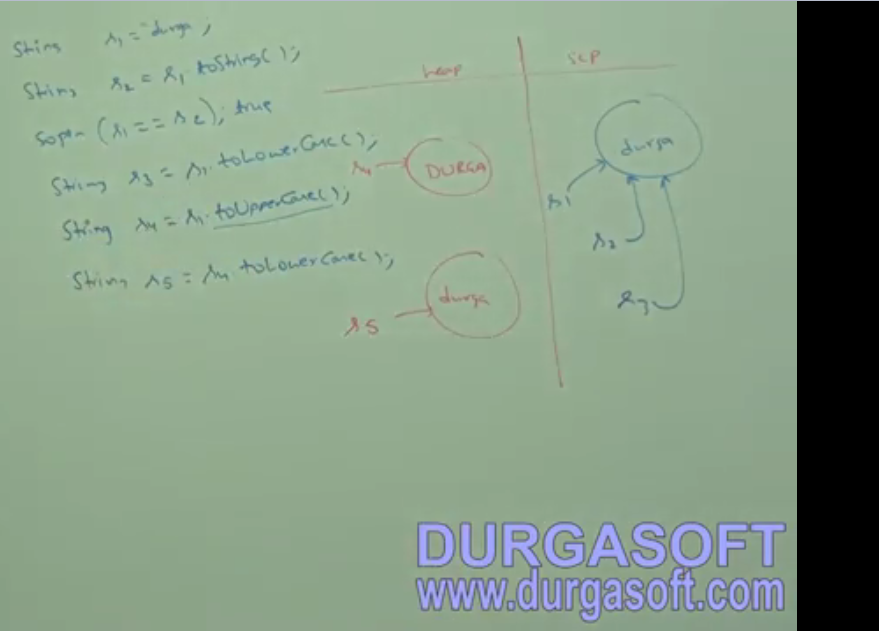 String s1 = "durga;
String s2 = s1.toString();
sopln (s1 == s2); true
String s3 = s1.toLowerCase();
String s4 = s1.toUpperCase();
String s5 = s4.toLowerCase();
heap
SCP
s4
DURGA
s5
durga
durga
s1
s2
s3
DURGASOFT
www.durgasoft.com